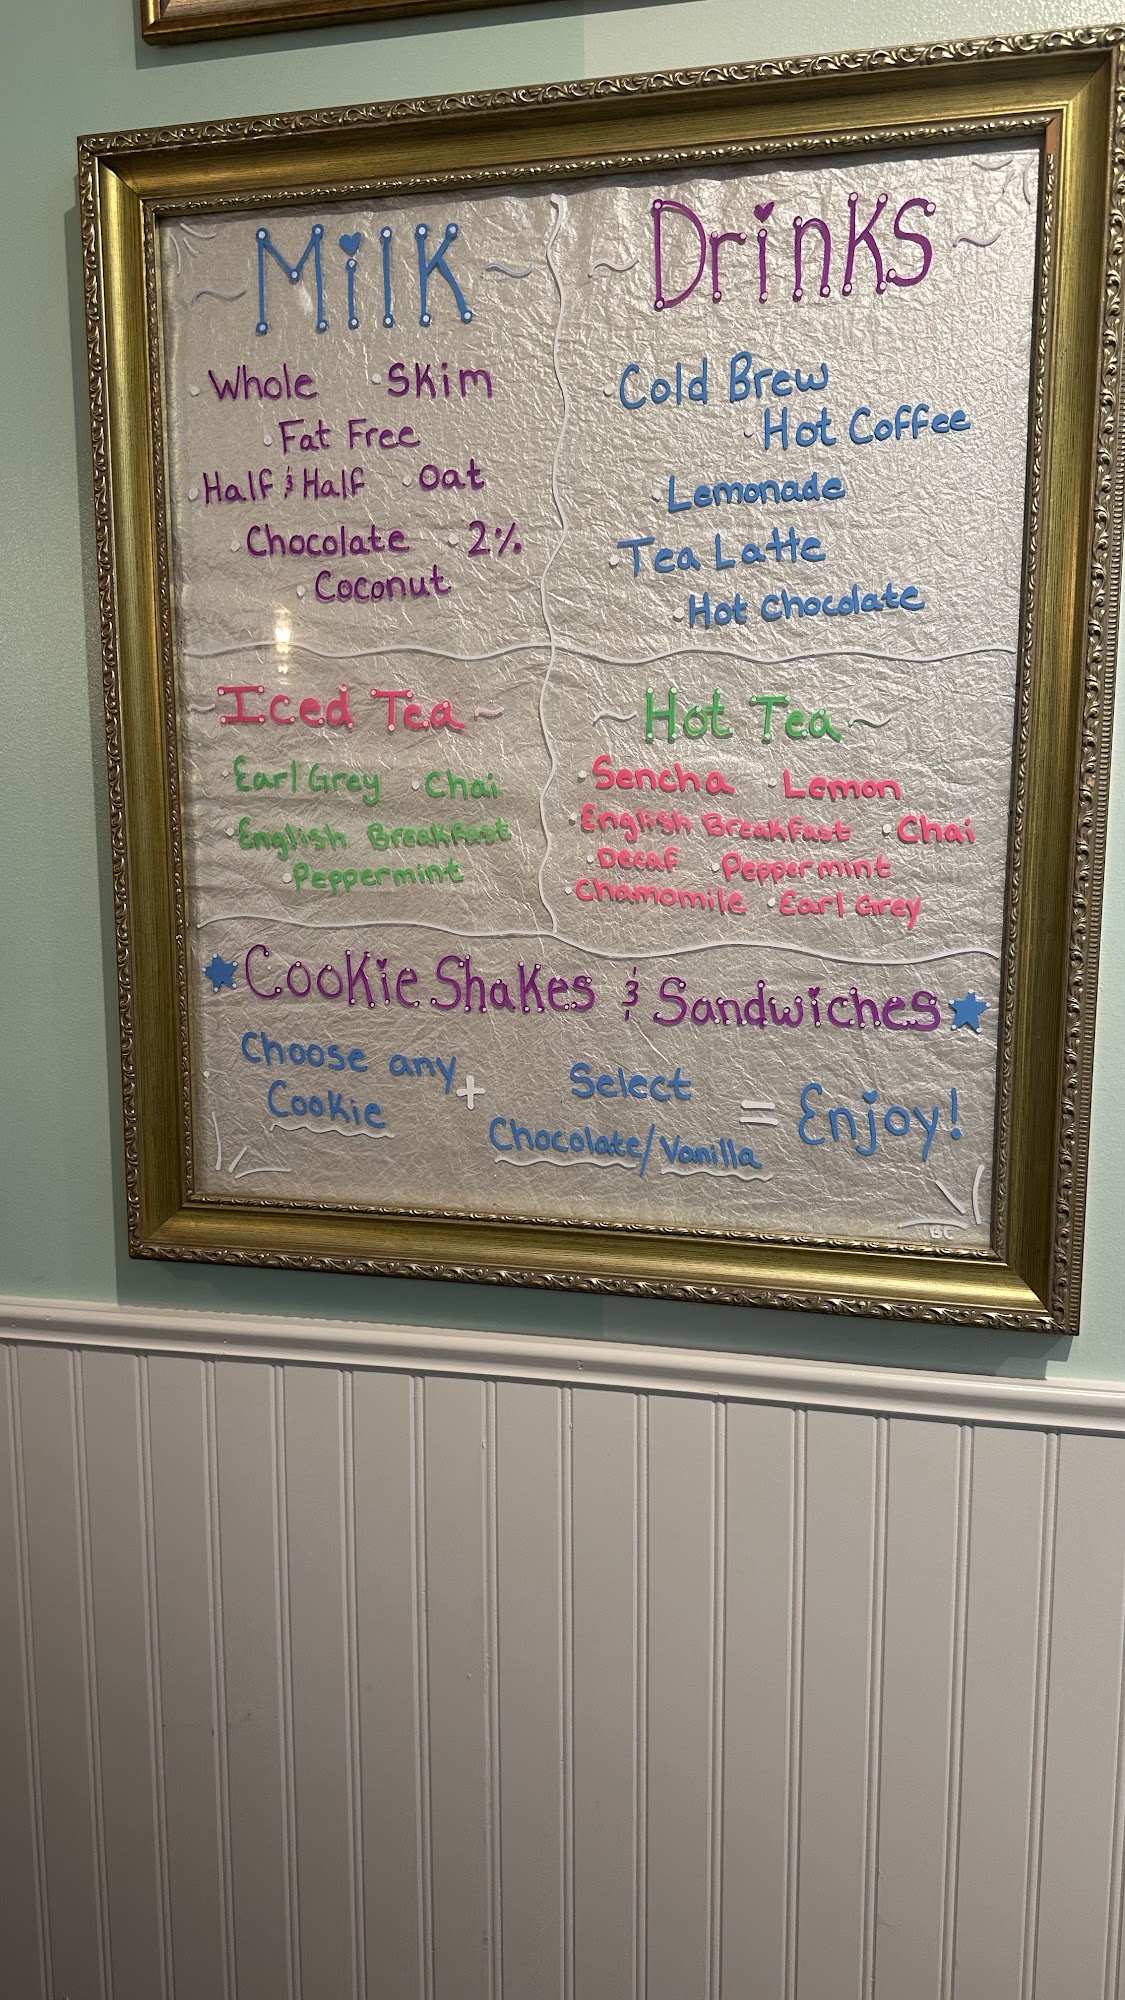 Milk
Whole Skim
Fat Free
Half & Half Oat
Chocolate 2%
Coconut
Drinks
Cold Brew
Hot Coffee
Lemonade
Tea Latte
Hot Chocolate
Iced Tea
Earl Grey Chai
English Breakfast
Peppermint
Hot Tea
Sencha Lemon
English Breakfast Chai
Decaf Peppermint
Chamomile Earl Grey
Cookie Shakes & Sandwiches
Choose any
Cookie
+
Select
Chocolate/Vanilla
= Enjoy!